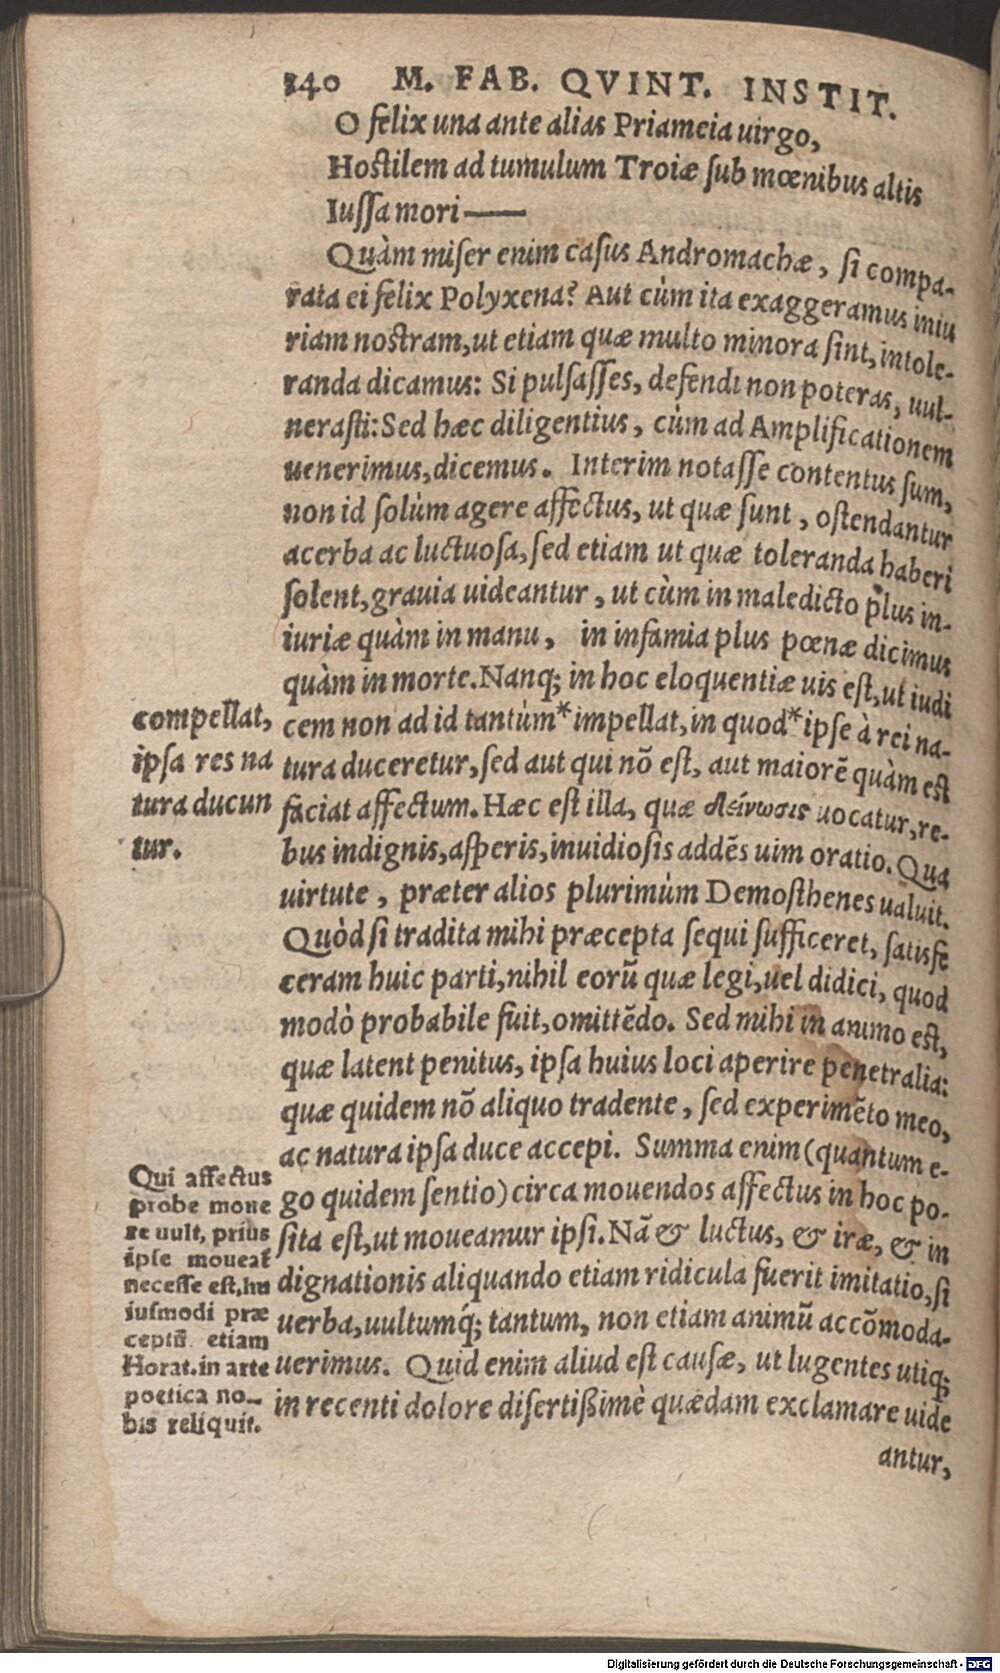 240 M. FAB. QVINT. INSTIT.
O felix una ante alias Priameia uirgo,
Hostilem ad tumulum Troiæ sub mœnibus altis
Iussa mori——
Quàm miser enim casus Andromachæ, si compa-
rata ei felix Polyxena? Aut cùm ita exaggeramus iniu
riam nostram, ut etiam quæ multo minora sint, intole-
randa dicamus: Si pulsasses, defendi non poteras, uul-
nerasti: Sed hæc diligentius, cùm ad Amplificationem
uenerimus, dicemus. Interim notasse contentus sum,
non id solùm agere affectus, ut quæ sunt, ostendantur
acerba ac luctuosa, sed etiam ut quæ toleranda haberi
solent, grauia uideantur, ut cùm in maledicto plus in-
iuriæ quàm in manu, in infamia plus pœnæ dicimus
quàm in morte. Nanq; in hoc eloquentiæ uis est, ut iudi
cem non ad id tantùm* impellat, in quod* ipse à rei na-
tura duceretur, sed aut qui nõ est, aut maiorẽ quàm est
faciat affectum. Hæc est illa, quæ δείνωσις uocatur, re-
bus indignis, asperis, inuidiosis addẽs uim oratio. Qua
uirtute, præter alios plurimùm Demosthenes ualuit.
Quòd si tradita mihi præcepta sequi sufficeret, satisfe
ceram huic parti, nihil eorũ quæ legi, uel didici, quod
modò probabile fuit, omittẽdo. Sed mihi in animo est,
quæ latent penitus, ipsa huius loci aperire penetralia:
quæ quidem nõ aliquo tradente, sed experimẽto meo,
ac natura ipsa duce accepi. Summa enim (quantum e-
go quidem sentio) circa mouendos affectus in hoc po-
sita est, ut moueamur ipsi. Nã & luctus, & iræ, & in
dignationis aliquando etiam ridicula fuerit imitatio, si
uerba, uultumq́; tantum, non etiam animũ accõmoda-
uerimus. Quid enim aliud est causæ, ut lugentes utiq;
in recenti dolore disertißimè quædam exclamare uide
antur,
compellat,
ipsa res na
tura ducun
tur.
Qui affectus
probe mone
re uult, prius
ipse moueat
necesse est, hu
iusmodi præ
ceptũ etiam
Horat. in arte
poetica no-
bis reliquit.
Digitalisierung gefördert durch die Deutsche Forschungsgemeinschaft - DFG